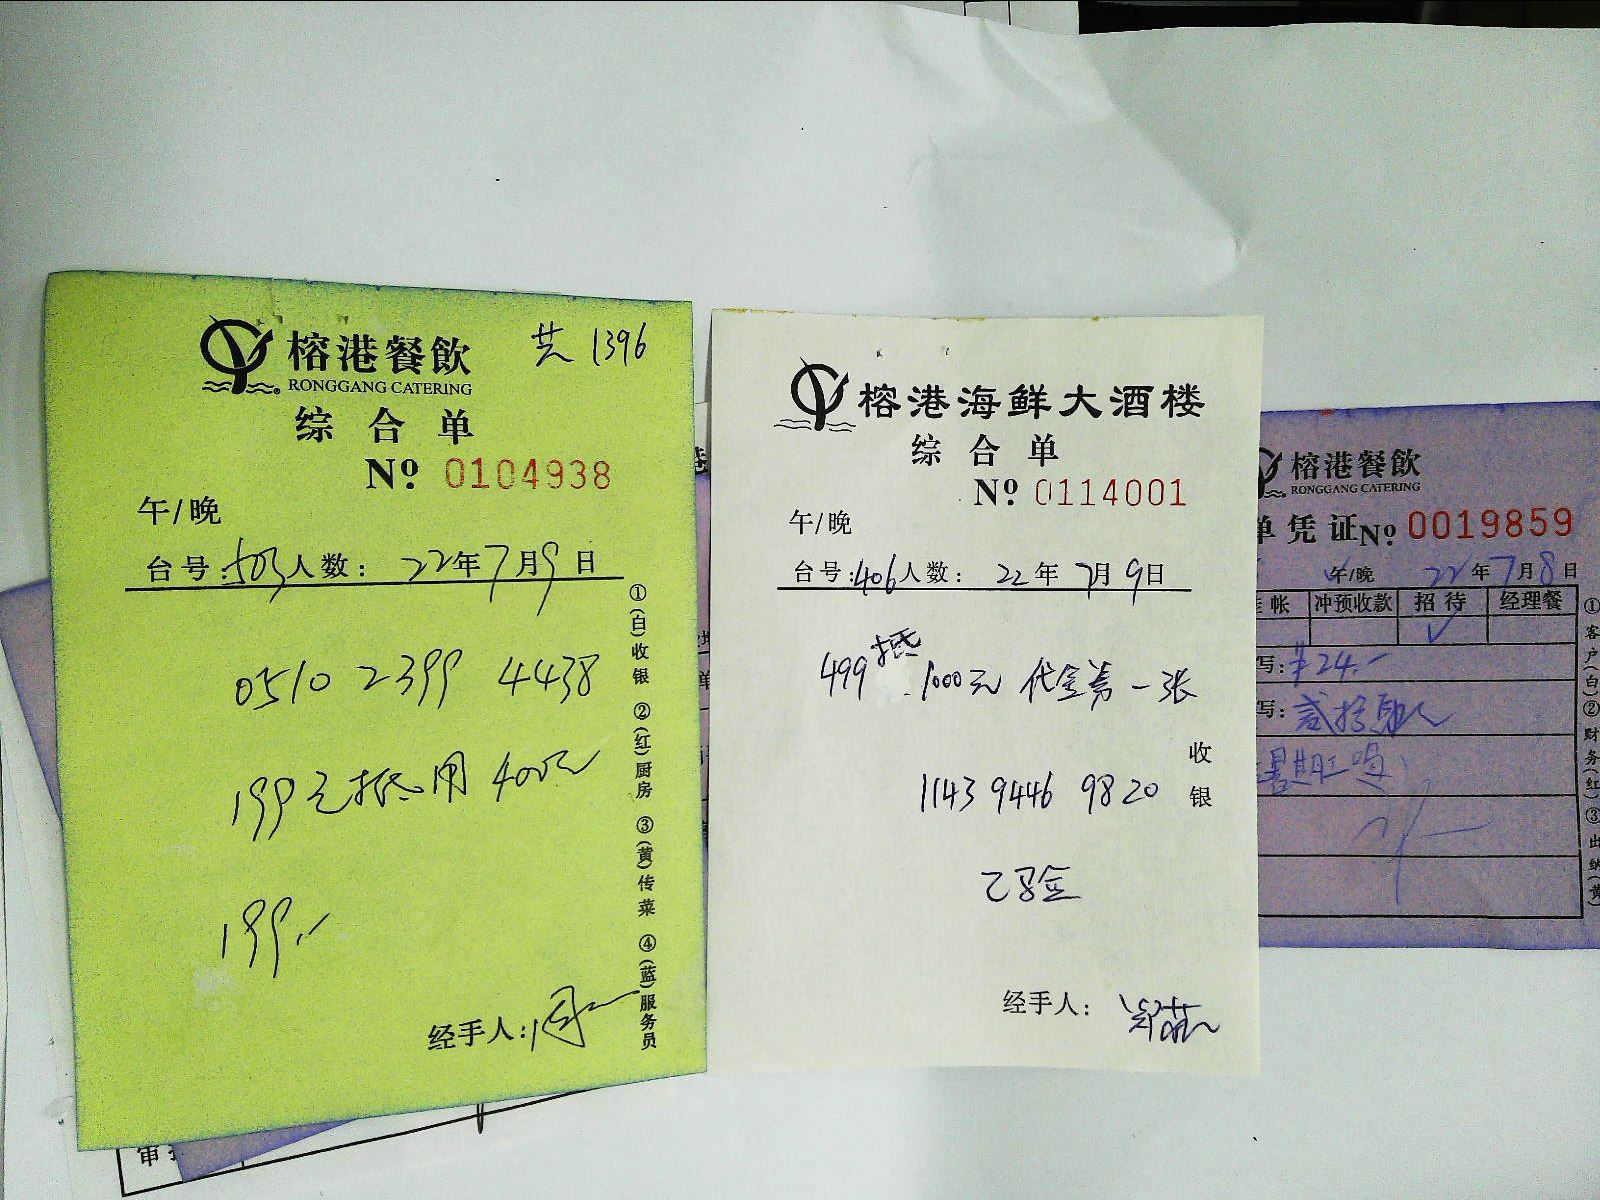 榕港餐飲
共 1396
RONGGANG CATERING
综合单
No 0104938
午/晚
台号:503人数: 22年7月9日
0510 2399 4438
199元抵用400元
199.-
经手人:周
①(白)收银 ②(红)厨房 ③(黄)传菜 ④(蓝)服务员
榕港海鲜大酒楼
综合单
No 0114001
午/晚
台号:406人数: 22年7月9日
499抵1000元代金券一张
1143 9446 9820
已验
收银
经手人:
榕港餐飲
RONGGANG CATERING
单凭证No 0019859
午/晚 22年7月8日
帐 冲预收款 招待 经理餐
写:¥24.-
写:贰拾肆元
①客户(白)②财务(红)③出纳(黄)
审